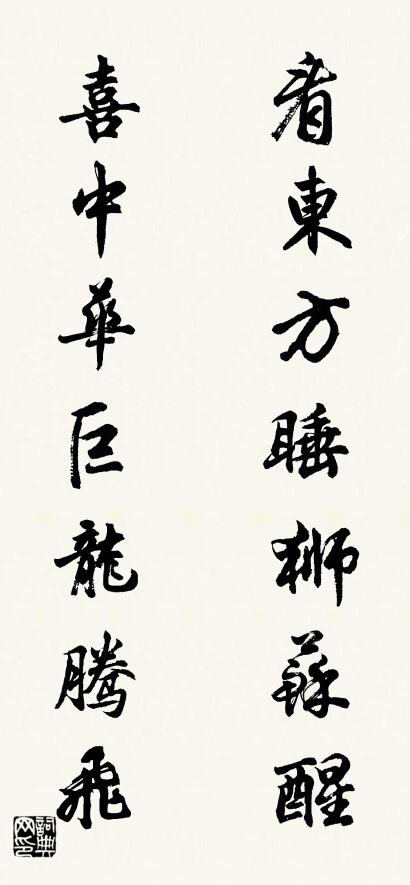 看東方睡獅蘇醒
喜中華巨龍騰飛
詞典網印